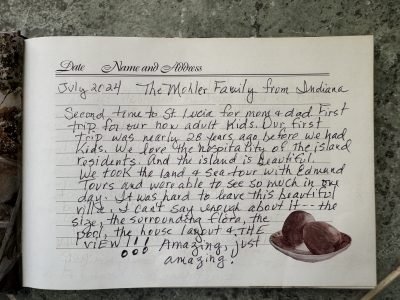 Date Name and Address
July 2024 The Mohler Family from Indiana
Second time to St Lucia for mom & dad. First
trip for our now adult kids. Our first
trip was nearly 28 years ago before we had
kids. We love the hospitality of the island
residents. And the island is beautiful.
We took the land & sea tour with Edmund
Tours and were able to see so much in one
day. It was hard to leave this beautiful
villa. I can't say enough about it -- the
size, the surrounding flora, the
pool, the house layout & THE
VIEW!!! Amazing, just
amazing!